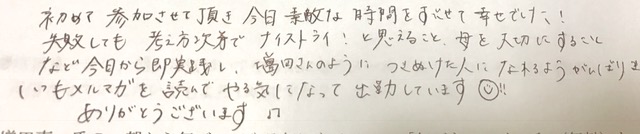 初めて参加させて頂き今日素敵な時間をすごせて幸せでした!
失敗しても考え方次第でナイストライ!と思えること、母を大切にすること
など今日から即実践し、増田さんのようにつきぬけた人になれるようがんばりま
いつもメルマガを読んでやる気になって出勤しています
ありがとうございます